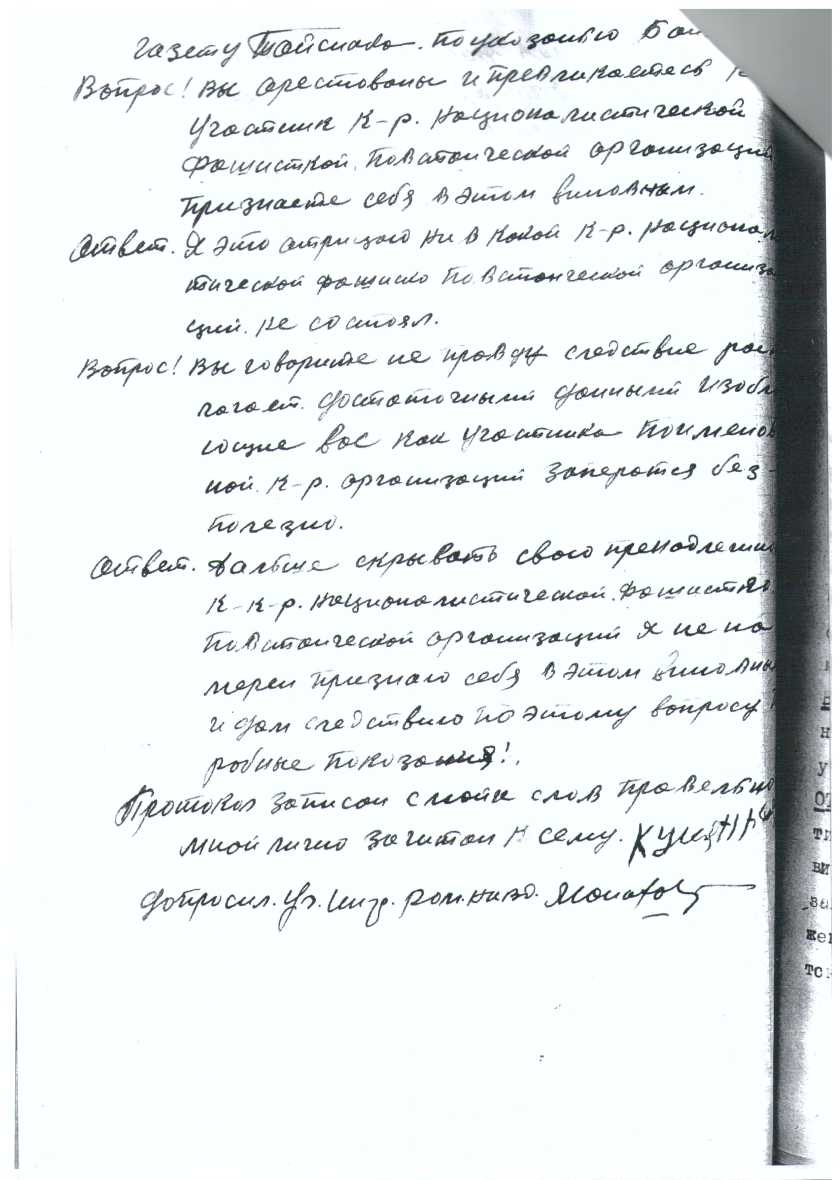 газету Тайслава. По указанью Бан
Вопрос! Вы арестованы и превликаетесь к
участник К-р. националистической
фашисткой. повстанческой организации
признаете себя в этом виновным.
Ответ. Я это отрицаю ни в какой К-р. национали
тической фашиско повстанческой организа
ций. не состоял.
Вопрос! Вы говорите не правду следствие рас
лагает. достаточными данными изобл
ющие вас как участника поименов
ной. К-р. организаций заператся без-
полезно.
Ответ. Дальше скрывать свою пренадлежно
к-к-р. националистической. фашистко.
повстанческой организаций я не на
мерен признаю себя в этом виновны
и дам следствию по этому вопросу
робные показания!.
Протокол записан с моих слов правельно
мной лично зачитан к сему.
допросил. Уп.
н
у
ви
за
жен
тс